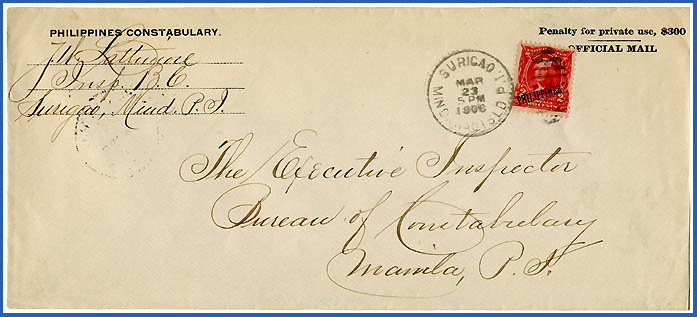 PHILIPPINES CONSTABULARY.
J.W. Lattimore
Insp. B.C.
Surigao, Mind. P.I.
Penalty for private use, $300
OFFICIAL MAIL
SURIGAO
MAR
23
5 PM
1906
PHILIPPINES
The Executive Inspector
Bureau of Constabulary
Manila, P.I.